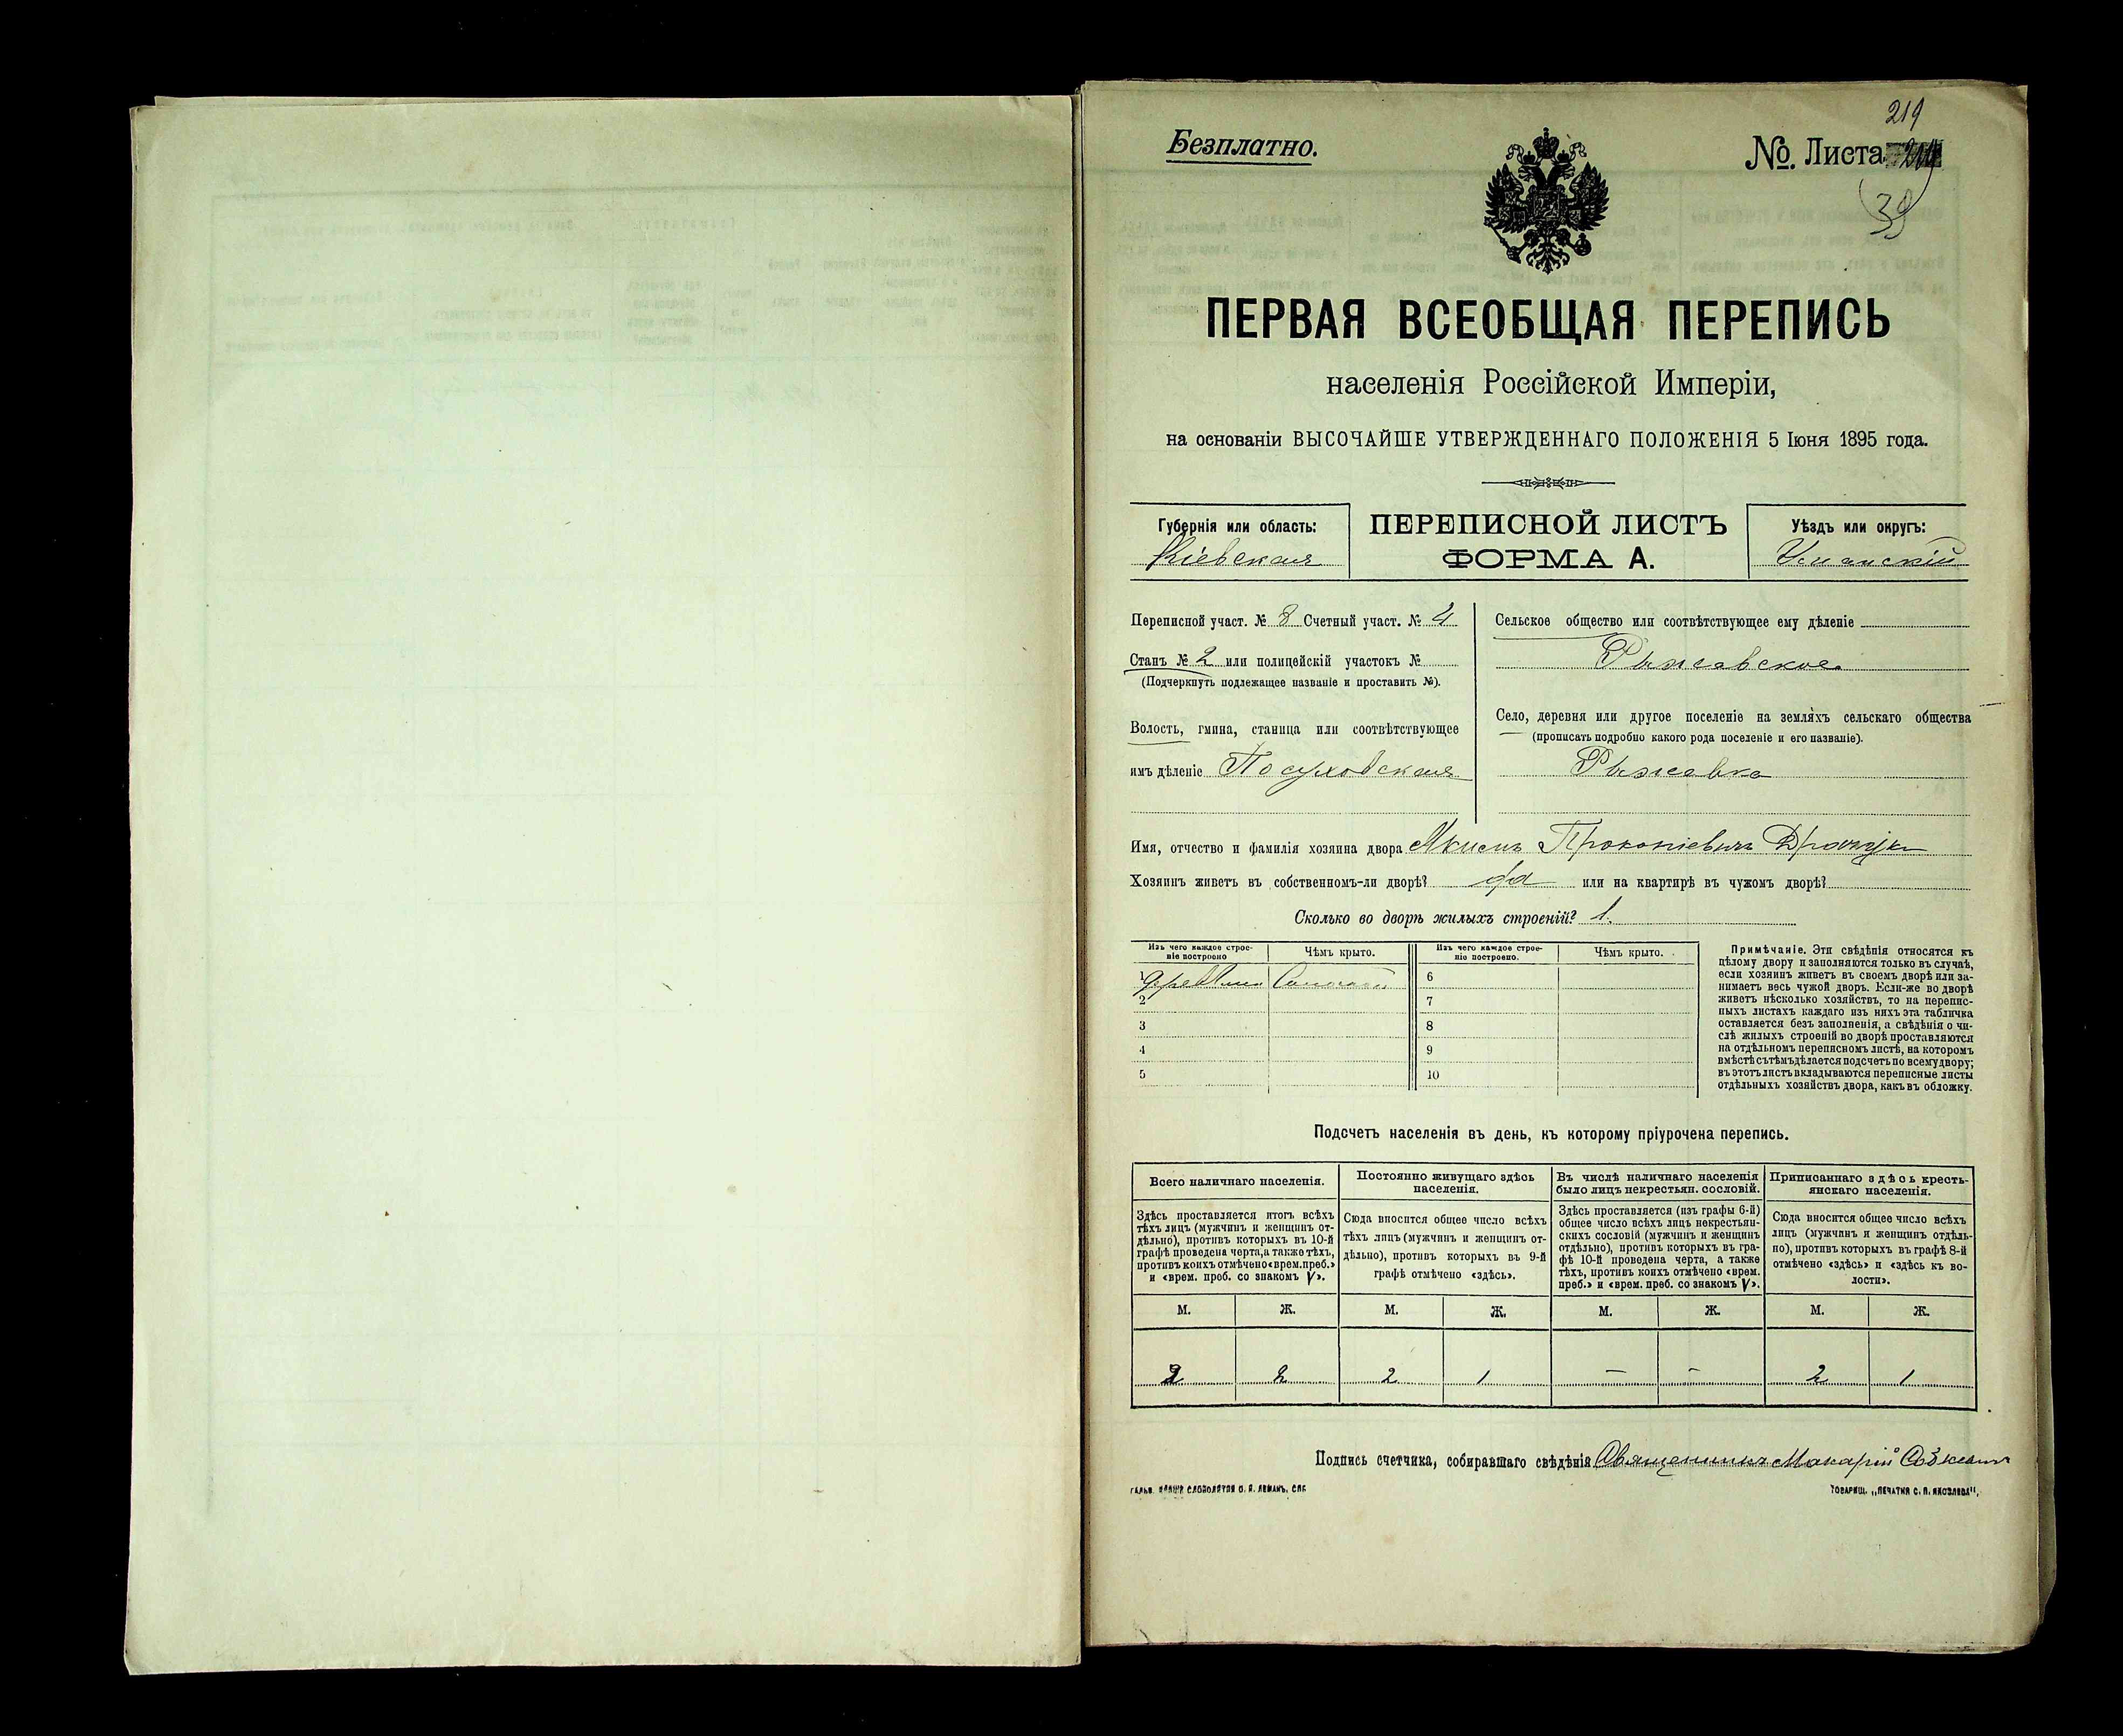 219
Безплатно.
№ Листа 219
39
ПЕРВАЯ ВСЕОБЩАЯ ПЕРЕПИСЬ
населенія Россійской Имперіи,
на основаніи ВЫСОЧАЙШЕ УТВЕРЖДЕННАГО ПОЛОЖЕНІЯ 5 Іюня 1895 года.
Губернія или область:
Кіевская
ПЕРЕПИСНОЙ ЛИСТЪ
ФОРМА А.
Уѣздъ или округъ:
Уманскій
Переписной участ. № 3 Счетный участ. № 4
Станъ № 2 или полицейскій участокъ №
(Подчеркнуть подлежащее названіе и проставить №).
Волость, гмина, станица или соотвѣтствующее
имъ дѣленіе Посуховская
Сельское общество или соотвѣтствующее ему дѣленіе
Рыжавское
Село, деревня или другое поселеніе на земляхъ сельскаго общества
(прописать подробно какого рода поселеніе и его названіе).
Рыжавка
Имя, отчество и фамилія хозяина двора Прокопіевичъ
Хозяинъ живетъ въ собственномъ-ли дворѣ? да или на квартирѣ въ чужомъ дворѣ?
Сколько во дворѣ жилыхъ строеній? 1.
Изъ чего каждое строе-
ніе построено
Чѣмъ крыто.
Изъ чего каждое строе-
ніе построено.
Чѣмъ крыто.
1
6
2
7
3
8
4
9
5
10
Примѣчаніе. Эти свѣдѣнія относятся къ
цѣлому двору и заполняются только въ случаѣ,
если хозяинъ живетъ въ своемъ дворѣ или за-
нимаетъ весь чужой дворъ. Если-же во дворѣ
живетъ нѣсколько хозяйствъ, то на перепис-
ныхъ листахъ каждаго изъ нихъ эта табличка
оставляется безъ заполненія, а свѣдѣнія о чи-
слѣ жилыхъ строеній во дворѣ проставляются
на отдѣльномъ переписномъ листѣ, на которомъ
вмѣстѣ съ тѣмъ дѣлается подсчетъ по всему двору;
въ этотъ листъ вкладываются переписные листы
отдѣльныхъ хозяйствъ двора, какъ въ обложку.
Подсчетъ населенія въ день, къ которому пріурочена перепись.
Всего наличнаго населенія.
Постоянно живущаго здѣсь
населенія.
Въ числѣ наличнаго населенія
было лицъ некрестьян. сословій.
Приписаннаго здѣсь кресть-
янскаго населенія.
Здѣсь проставляется итогъ всѣхъ
тѣхъ лицъ (мужчинъ и женщинъ от-
дѣльно), противъ которыхъ въ 10-й
графѣ проведена черта, а также тѣхъ,
противъ коихъ отмѣчено «врем. преб.»
и «врем. преб. со знакомъ V».
Сюда вносится общее число всѣхъ
тѣхъ лицъ (мужчинъ и женщинъ от-
дѣльно), противъ которыхъ въ 9-й
графѣ отмѣчено «здѣсь».
Здѣсь проставляется (изъ графы 6-й)
общее число всѣхъ лицъ некрестьян-
скихъ сословій (мужчинъ и женщинъ
отдѣльно), противъ которыхъ въ гра-
фѣ 10-й проведена черта, а также
тѣхъ, противъ коихъ отмѣчено «врем.
преб.» и «врем. преб. со знакомъ V».
Сюда вносится общее число всѣхъ
лицъ (мужчинъ и женщинъ отдѣль-
но), противъ которыхъ въ графѣ 8-й
отмѣчено «здѣсь» и «здѣсь къ во-
лости».
М. Ж. М. Ж. М. Ж. М. Ж.
2 2 2 1 – – 2 1
Подпись счетчика, собиравшаго свѣдѣнія Священникъ Макарій
ТОВАРИЩ. „ПЕЧАТНЯ С. П. ЯКОВЛЕВА“,